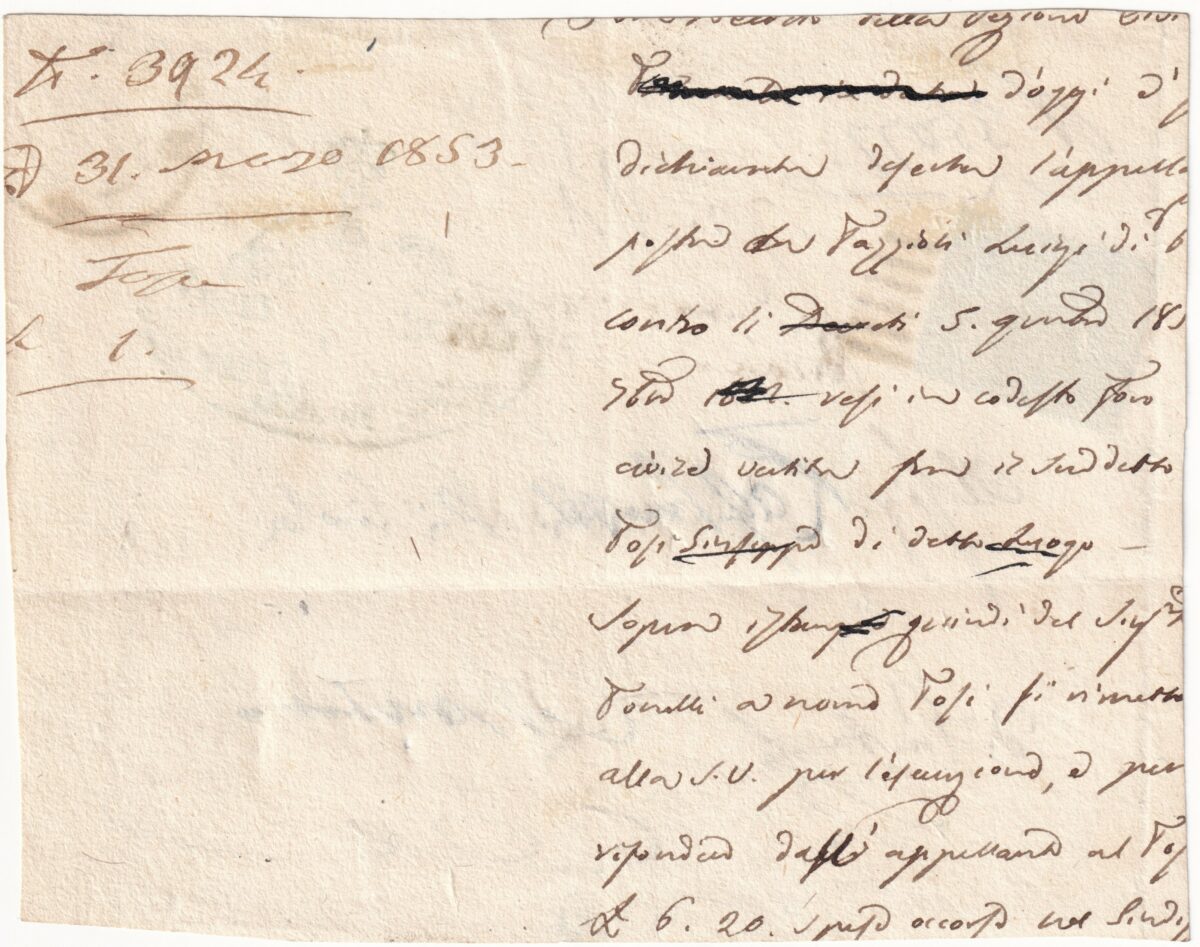 N.º 3924.
31. marzo 1853.
Tosi
1.
della Sezione Civi
d'oggi è
dichiarata deserta l'appella
posta da Fazzioli Luigi di
contro li Decreti 5. 185
7bre resi in codesto Foro
civile vertita fra il suddetto
Tosi Giuseppe di detto Luogo —
Sopra quindi del Sigr
Tonelli a nome Tosi si rimette
alla S.V. per l'esecuzione, e per
rifondere dallo appellante al Tos
£ 6. 20. spese occorse nel Giudiz